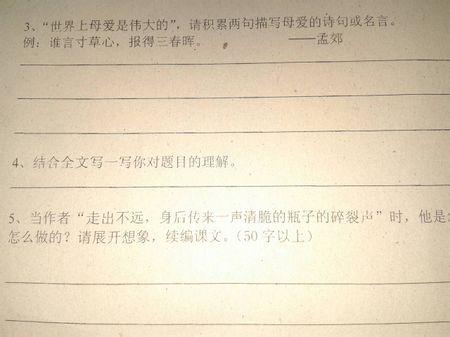 3、“世界上母爱是伟大的”，请积累两句描写母爱的诗句或名言。
例：谁言寸草心，报得三春晖。 ——孟郊
4、结合全文写一写你对题目的理解。
5、当作者“走出不远，身后传来一声清脆的瓶子的碎裂声”时，他是
怎么做的？请展开想象，续编课文。（50 字以上）